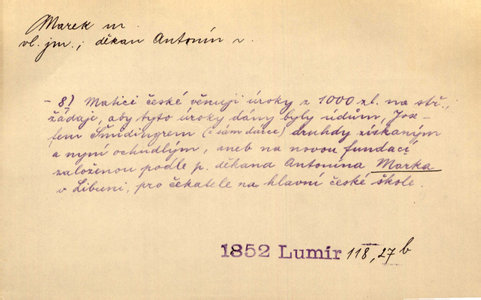 Marek m.
vl. jm.; děkan Antonín
- 8) Matici české věnuji úroky z 1000 zl. na stř.,
žádaje, aby tyto úroky dány byly údům, Jose-
fem Šmidingrem (= sám dárce) druhdy získaným
a nyní ochudlým, aneb na novou fundací
založenou podle p. děkana Antonína Marka
v Libuni, pro čekatele na hlavní české škole.
1852 Lumír 118, 27 b